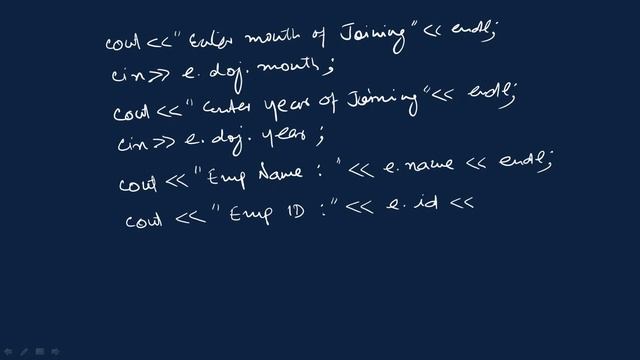 cout <<" Enter month of Joining" << endl;
cin >> e. doj. month ;
cout << " enter year of Joining" << endl;
cin >> e. doj. year ;
cout << "Emp Name : " << e. name << endl;
cout << " Emp ID :" << e. id <<